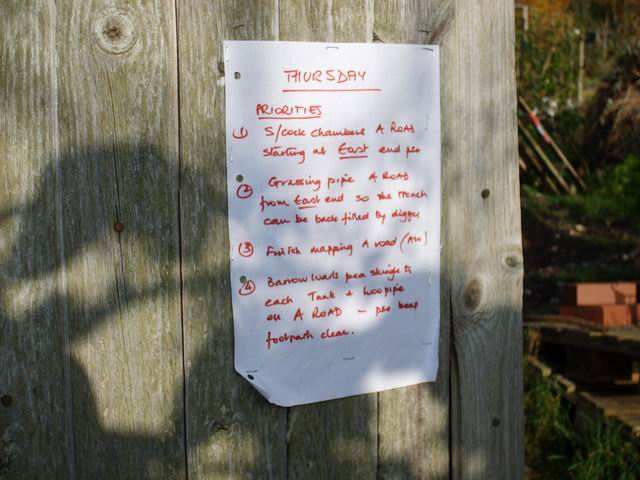 THURSDAY
PRIORITIES
1 S/cock chambers A ROAD
starting at East end
2 Grassing pipe A ROAD
from East end so the trench
can be back filled by digger
3 Finish mapping A road (AW)
4 Barrow loads pea shingle to
each Tank + loo pipe
on A ROAD – keep
footpath clear.